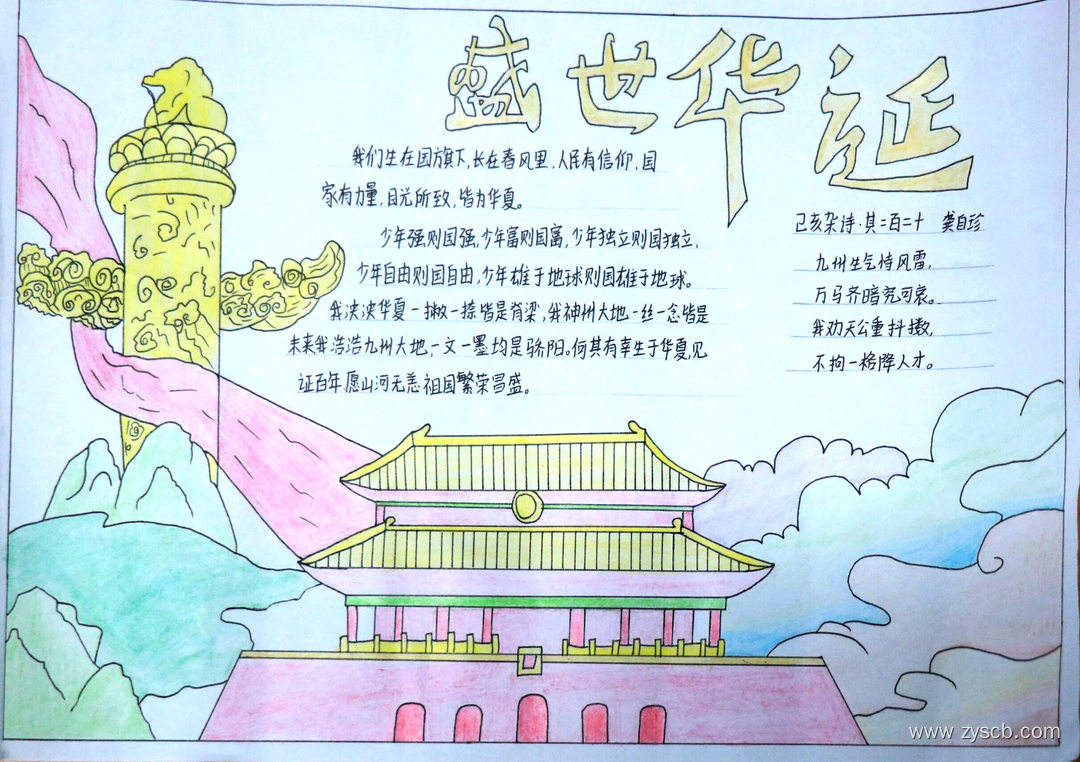 盛世华延
我们生在国旗下,长在春风里.人民有信仰.国
家有力量,目光所致,皆为华夏。
少年强则国强,少年富则国富,少年独立则国独立,
少年自由则国自由,少年雄于地球则国雄于地球。
我泱泱华夏一撇一捺皆是脊梁,我神州大地一丝一念皆是
未来我浩浩九州大地,一文一墨均是骄阳。何其有幸生于华夏,见
证百年愿山河无恙祖国繁荣昌盛。
己亥杂诗·其二百二十 龚自珍
九州生气恃风雷,
万马齐喑究可哀。
我劝天公重抖擞,
不拘一格降人才。
www.zyscb.com